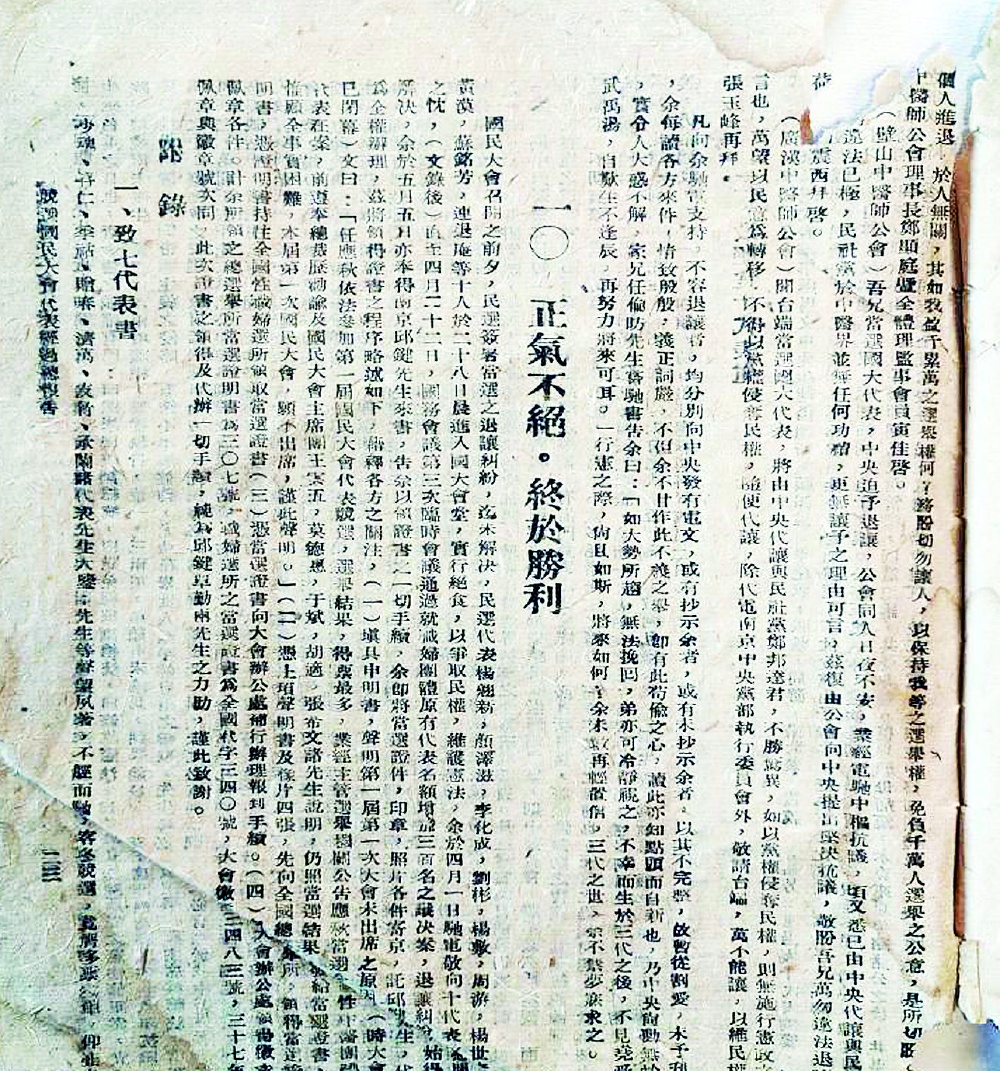 個人進退，於人無關，其如我盈千累萬之選舉權何，務盼切勿讓人，以保持我等之選舉權，免負千萬人選舉之公意，是所切盼
中醫師公會理事長鄭順庭暨全體理監事會員寅佳啓。
（璧山中醫師公會）吾兄當選國大代表，中央迫予退讓，公會同人日夜不安，業經電馳中樞抗議，頃又悉已由中央代讓與民
違法已極，民社黨於中醫界並無任何功績，更無讓予之理由可言，茲復由公會向中央提出堅決抗議，敬盼吾兄萬勿違法退
震西拜啓。
（廣漢中醫師公會）聞台端當選國大代表，將由中央代讓與民社黨鄭邦達君，不勝駭異，如以黨權侵奪民權，則無施行憲政
言也，萬望以民意為轉移，不得以黨權侵奪民權，隨便代讓，除代電南京中央黨部執行委員會外，敬請台端，萬不能讓，以維民權
張玉峰再拜。
凡向余馳電支持，不容退讓者，均分別向中央發有電文，或有抄示余者，或有未抄示余者，以其不完整，故暫從割愛，未予刊
，余每讀各方來件，情致殷殷，義正詞嚴，不但余不甘作此不義之舉，卽有此荀偷之心，讀此亦知點頭而自新也，乃中央
，實令人大惑不解，家兄任倫昉先生馳書告余曰：「如大勢所趨，無法挽回，弟亦可冷靜視之，不幸而生於三代之後，不見堯
武禹湯，自歎生不逢辰，再努力將來可耳。」行憲之際，尚且如斯，將來如何，余未敢再輕置信，三代之世，余不禁夢寐求之。
一〇　正氣不絕・終於勝利
國民大會召開之前夕，民選簽署當選之退讓糾紛，迄未解決，民選代表楊翹新，顏澤滋，李化成，劉彬，楊敷，周游，楊世
黃謨，蘇銘芳，連退庵等十人於二十八日晨進入國大會堂，實行絕食，以爭取民權，維護憲法，余於四月一日馳電敬向十代表
之忱，（文錄後）直至四月二十二日，國務會議第三次臨時會議通過就職婦團體原有代表名額增加三百名之議決案，退讓糾紛，始得
解決，余於五月五日亦奉得南京邱鍵先生來書，告余以領證書之一切手續，余卽將當選證件，印章，照片各件寄京，託邱先生，代
為全權辦理，茲將領得證書之程序略述如下，藉釋各方之關注，（一）填具申明書，聲明第一屆第一次大會未出席之原因（時大會
已閉幕）文曰：「任應秋依法參加第一屆國民大會代表競選，選舉結果，得票最多，業經主管選舉機關公告應秋當選
代表在案，前遵奉總裁歷次勸諭及國民大會主席團王雲五，莫德惠，于斌，胡適，張布文諸先生說明，仍照當選結果，發給當選證書
惟顧全事實困難，本屆第一次國民大會，願不出席，謹此聲明。」（二）憑上項聲明書及樣片四張，先向全國總
明書，憑證明書持往全國性職婦選所領取當選證書（三）憑當選證書向大會辦公處補行辦理報到手續。（四）大會辦公處領得徽章
佩章各件。計余所領之總選舉所當選證明書為三〇七號，職婦選所之當選證書為全國代字三四〇號，大會徽章二四八三號，三十七年
佩章與徽章號次同，此次證書之領得及代辦一切手續，純為邱鍵卓勤兩先生之力助，謹此致謝。
附　錄
一、致七代表書
少魂、存仁、
競選國民大會代表經過總報告
二三